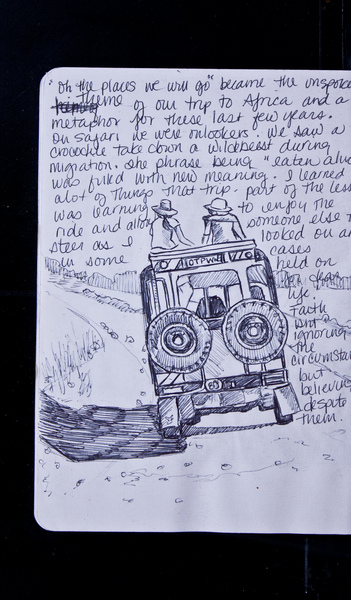 "oh the places we will go" became the unspoke
theme of our trip to Africa and a
metaphor for these last few years.
On safari we were onlookers. We saw a
crocodile take down a wildebeest during
migration. The phrase being "eaten aliv
was filled with new meaning. I learned
alot of things that trip. part of the less
was learning to enjoy the
ride and allow someone else t
steer as I looked on an
in some cases
held on
for dear
life.
Faith
isn't
ignoring
the
circumsta
but
believin
despite
them.